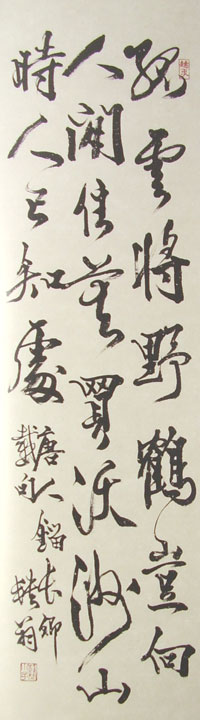 孤雲將野鶴豈向
人間住莫買沃洲山
時人已知處
長卿
翁